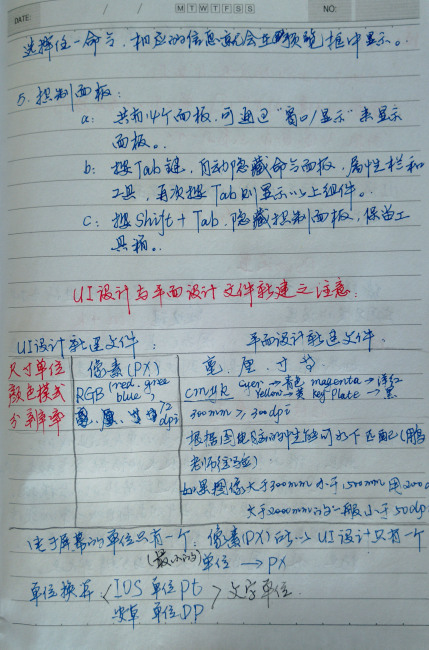 DATE: / / M T W T F S S NO:
选择任一命令,相应的信息就会在预览框中显示。
5. 控制面板:
a: 共有14个面板,可通过"窗口/显示"来显示
面板。
b: 按Tab键,自动隐藏命令面板,属性栏和
工具,再次按Tab则显示以上组件。
c: 按Shift + Tab,隐藏控制面板,保留工
具箱。
UI设计与平面设计文件新建之注意:
UI设计新建文件: 平面设计新建文件
尺寸单位 像素(PX) 毫、厘、寸等
颜色模式 RGB (red. green blue) CMYK cyan→青色 magenta→洋红
Yellow→黄 key-Plate→黑
分辨率 72 dpi 300mm ≥ 300dpi
根据图电脑的性能可如下匹配(用
老师
如果图像大于300mm 小于1500mm 用200d
大于2000mm的一般小于50dp
由于屏幕的单位只有一个,像素(PX)所以UI设计只有一个
(最小的)单位 → PX
单位换算 < IOS 单位pt > 文字单位.
安卓 单位DP